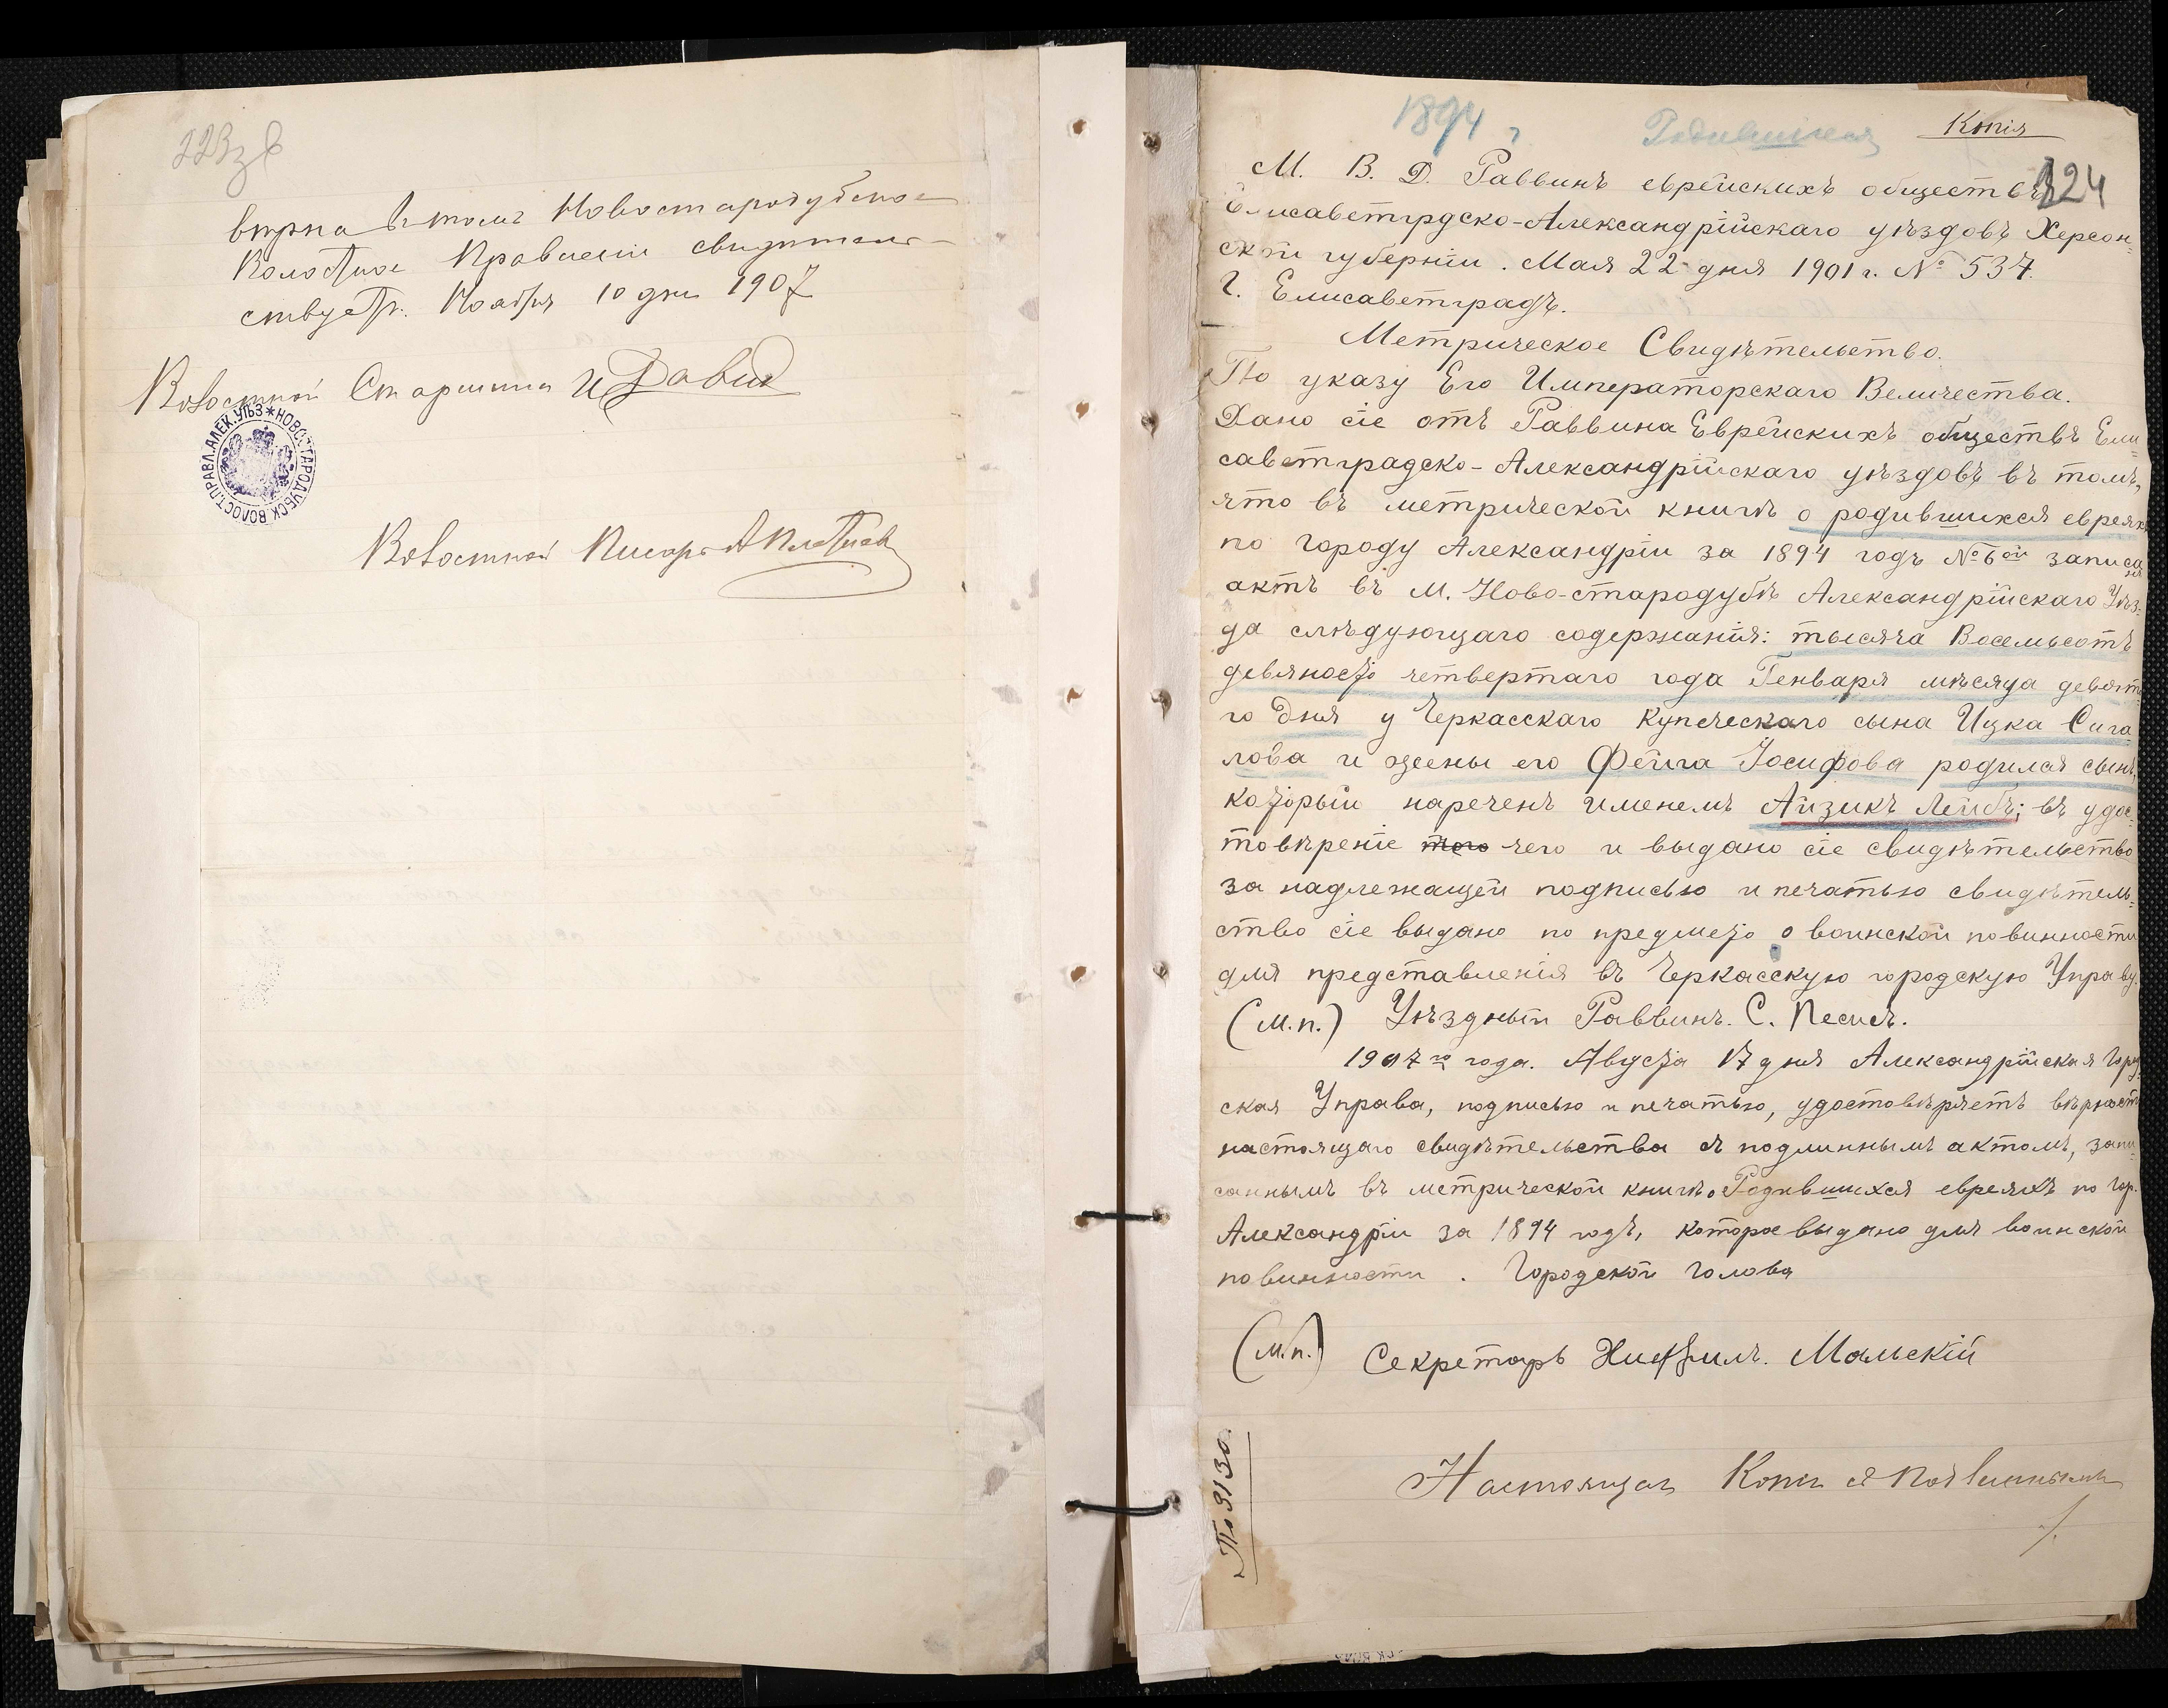 223 об
вѣрна въ томъ Новостародубское
Волостное Правленіе свидѣтель-
ствуетъ. Ноября 10 дня 1907
Волостной Старшина
НОВОСТАРОДУБСК. ВОЛОСТ. ПРАВЛ. АЛЕК. УѢЗ.
Волостной Писарь
1894 г.
Родившихся
Копія
224
М. В. Д. Раввинъ еврейскихъ обществъ
Елисаветгрдско-Александрійскаго уѣздовъ Херсон=
ской губерніи. Мая 22 дня 1901 г. № 537.
г. Елисаветградъ.
Метрическое Свидѣтельство.
По указу Его Императорскаго Величества.
Дано сіе отъ Раввина Еврейскихъ обществъ Ели=
саветградско-Александрійскаго уѣздовъ въ томъ,
что въ метрической книгѣ о родившихся евреяхъ
по городу Александріи за 1894 годъ № 6ой записанъ
актъ въ м. Ново-стародубѣ Александрійскаго Уѣз=
да слѣдующаго содержанія: тысяча Восемьсотъ
девяносто четвертаго года Генваря мѣсяца девята
го дня у Черкасскаго Купеческаго сына Ицка Сига=
лова и жены его Фейга Іосифова родился сынъ,
который нареченъ именемъ Айзикъ Лейбъ; въ удос=
товѣреніе того чего и выдано сіе свидѣтельство
за надлежащей подписью и печатью свидѣтель=
ство сіе выдано по предмето о воинской повинности
для представленія въ Черкасскую городскую Управу.
(м.п.) Уѣздный Раввинъ. С. Песисъ.
1907го года. Августа 17 дня Александрійская Город=
ская Управа, подписью и печатью, удостовѣряетъ вѣрность
настоящаго свидѣтельства съ подлиннымъ актомъ, запи=
саннымъ въ метрической книгѣ о Родившихся евреяхъ по гор.
Александріи за 1894 годъ, которое выдано для воинской
повинности. Городской Голова
(м.п.) Секретарь Мальскій
Настоящая Копія съ подлиннымъ
По 3130.